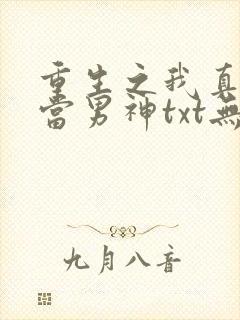 重生之我真
當男神txt無
九月八音